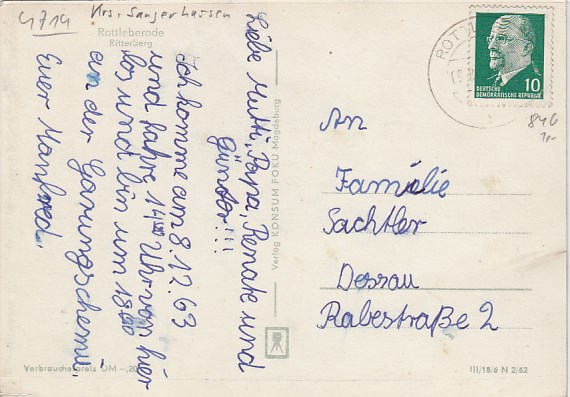 4714 Krs. Sangerhausen
Rottleberode
Ritterberg
Liebe Mutti, Papa, Renate und
Günter!!!
Ich komme am 8.12.63
und fahre 14 Uhr von hier
los und bin um 18
an der
Euer Manfred.
Verlag KONSUM FOKU Magdeburg
DEUTSCHE
DEMOKRATISCHE REPUBLIK
10
846
An
Familie
Sachtler
Dessau
Rabestraße 2
Verbraucherpreis DM -,20
III/18/6 N 2/62